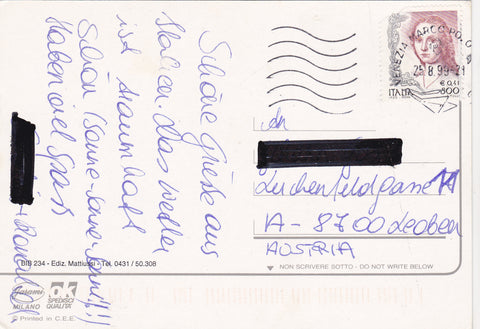 Schöne Grüße aus
Italien. Das Wetter
ist traumhaft
schön (Sonne-Sonne-Sonne!!!!)
Haben viel Spaß
VENEZIA MARCO POLO
25.8.99-21
€ 0,41
ITALIA 800
An
Lerchenfeldgasse 11
A-8700 Leoben
AUSTRIA
BIB 234 - Ediz. Mattiussi - Tel. 0431 / 50.308
NON SCRIVERE SOTTO - DO NOT WRITE BELOW
MILANO
OK
SPEDISCI
QUALITÀ
© Printed in C.E.E.